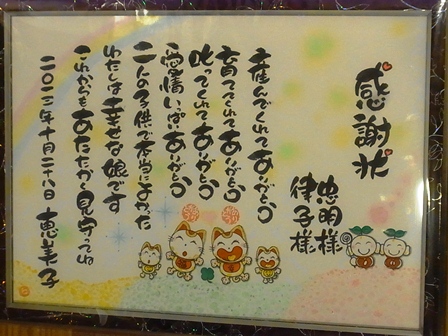 感謝状
忠明様
律子様
産んでくれてありがとう
育ててくれてありがとう
叱ってくれてありがとう
愛情いっぱいありがとう
二人の子供で本当によかった
わたしは幸せな娘です
これからもあたたかく見守ってね
二〇一三年十月二十八日 恵美子